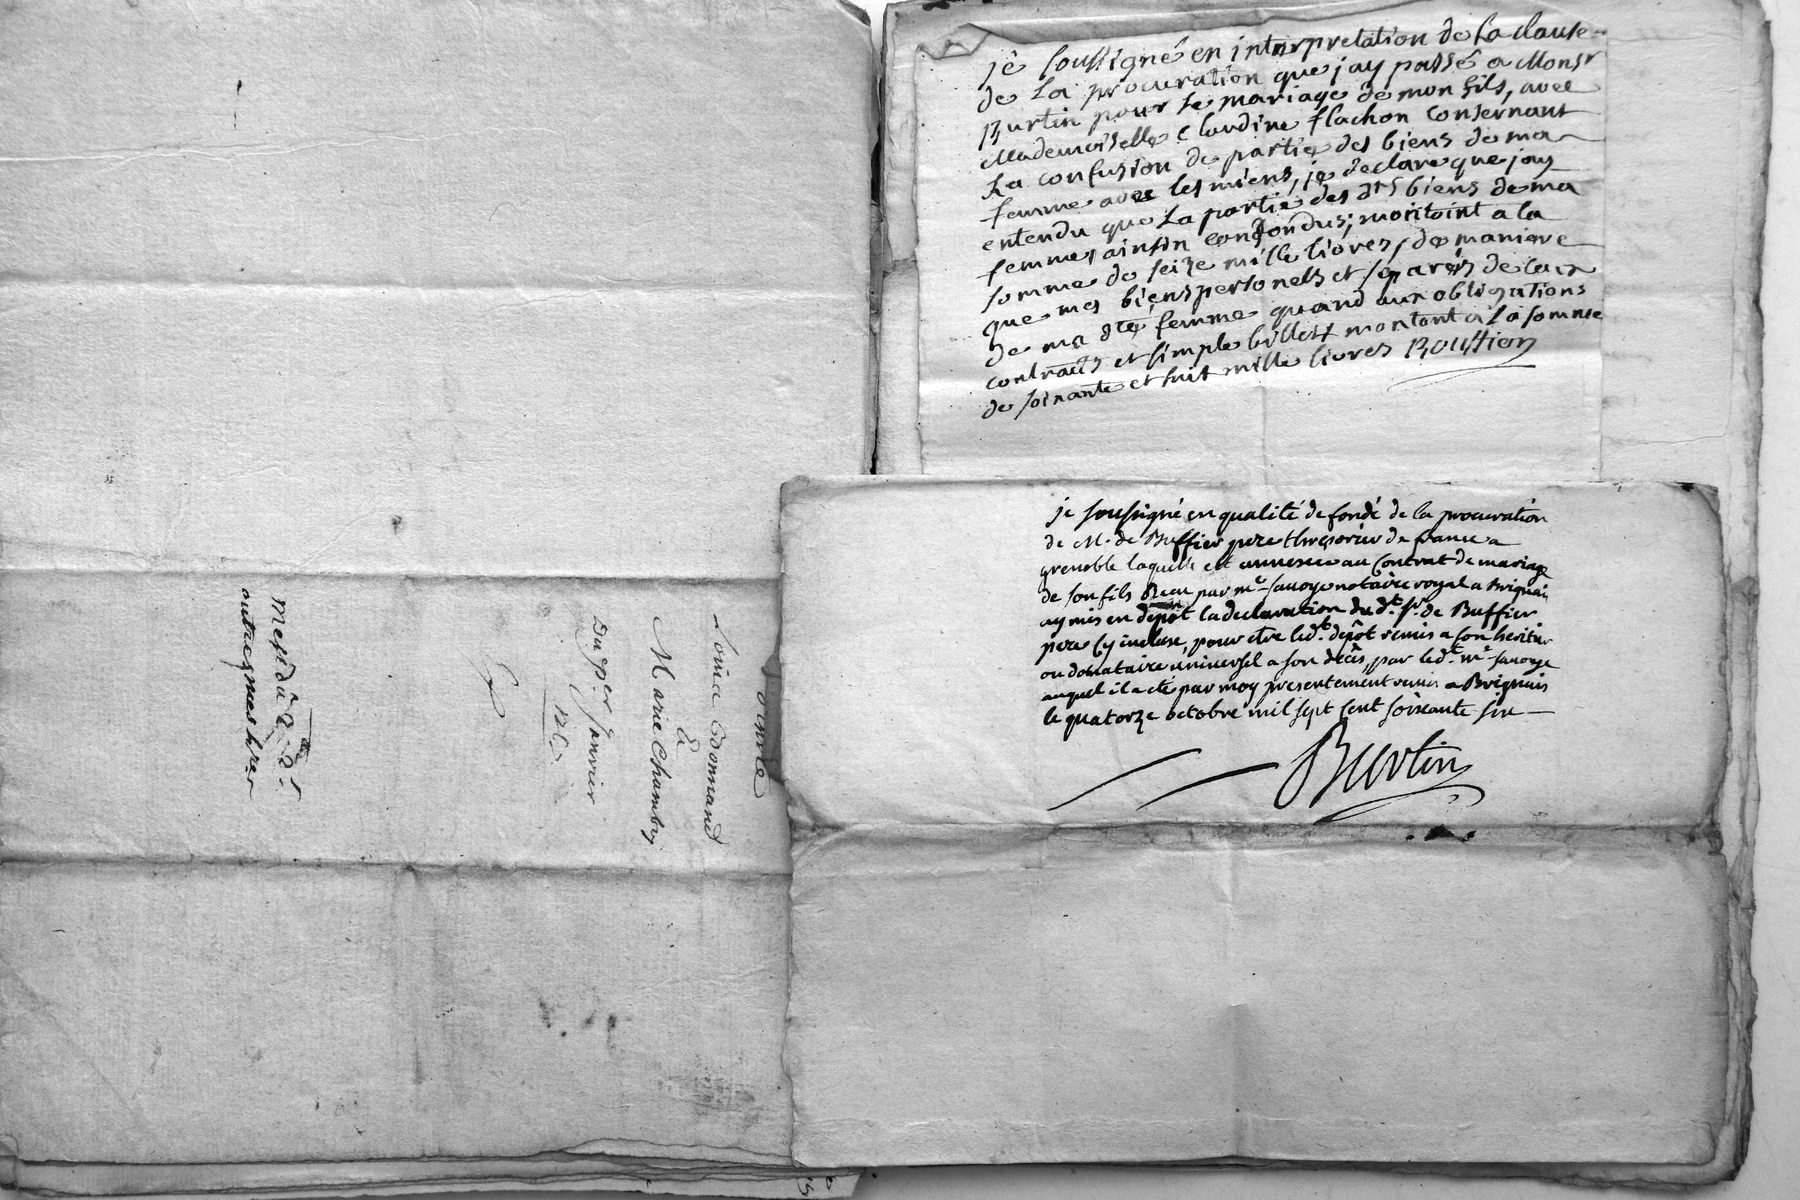 jê soussigné en interpretation de la clause
de la procuration que jay passé a Monsr
Burtin pour le mariage de mon fils, avec
Mademoiselle Claudine flachon consernant
La confusion de partie des biens de ma
femme avec les miens, je declare que jay
entendu que La partie des dts biens de ma
femme, ainsin confondus, montoint a la
somme de seize mille livres, de maniere
que mes biens personels et separés de ceux
de ma dte femme quand aux obligations
contracts et simple billest montant a la somme
de soixante et huit mille livres
je soussigné en qualité de fondé de la procuration
de M. de Buffier pere thresorier de france a
grenoble laquelle est annexee au Contrat de mariage
de son fils Recu par me Savoye notaire royal a Brignais
ay mis en dépot la declaration du dt. sr. de Buffier
pere Cy incluse, pour etre ledt. depôt remis a son heritier
ou donataire universel a son décès, par ledt. me Savoye
auquel il a eté par moy presentement remis a Brignais
le quatorze octobre mil sept cent soixante six
Burtin
Donnand
&
Marie Chambry
Du 9er Janvier
autres